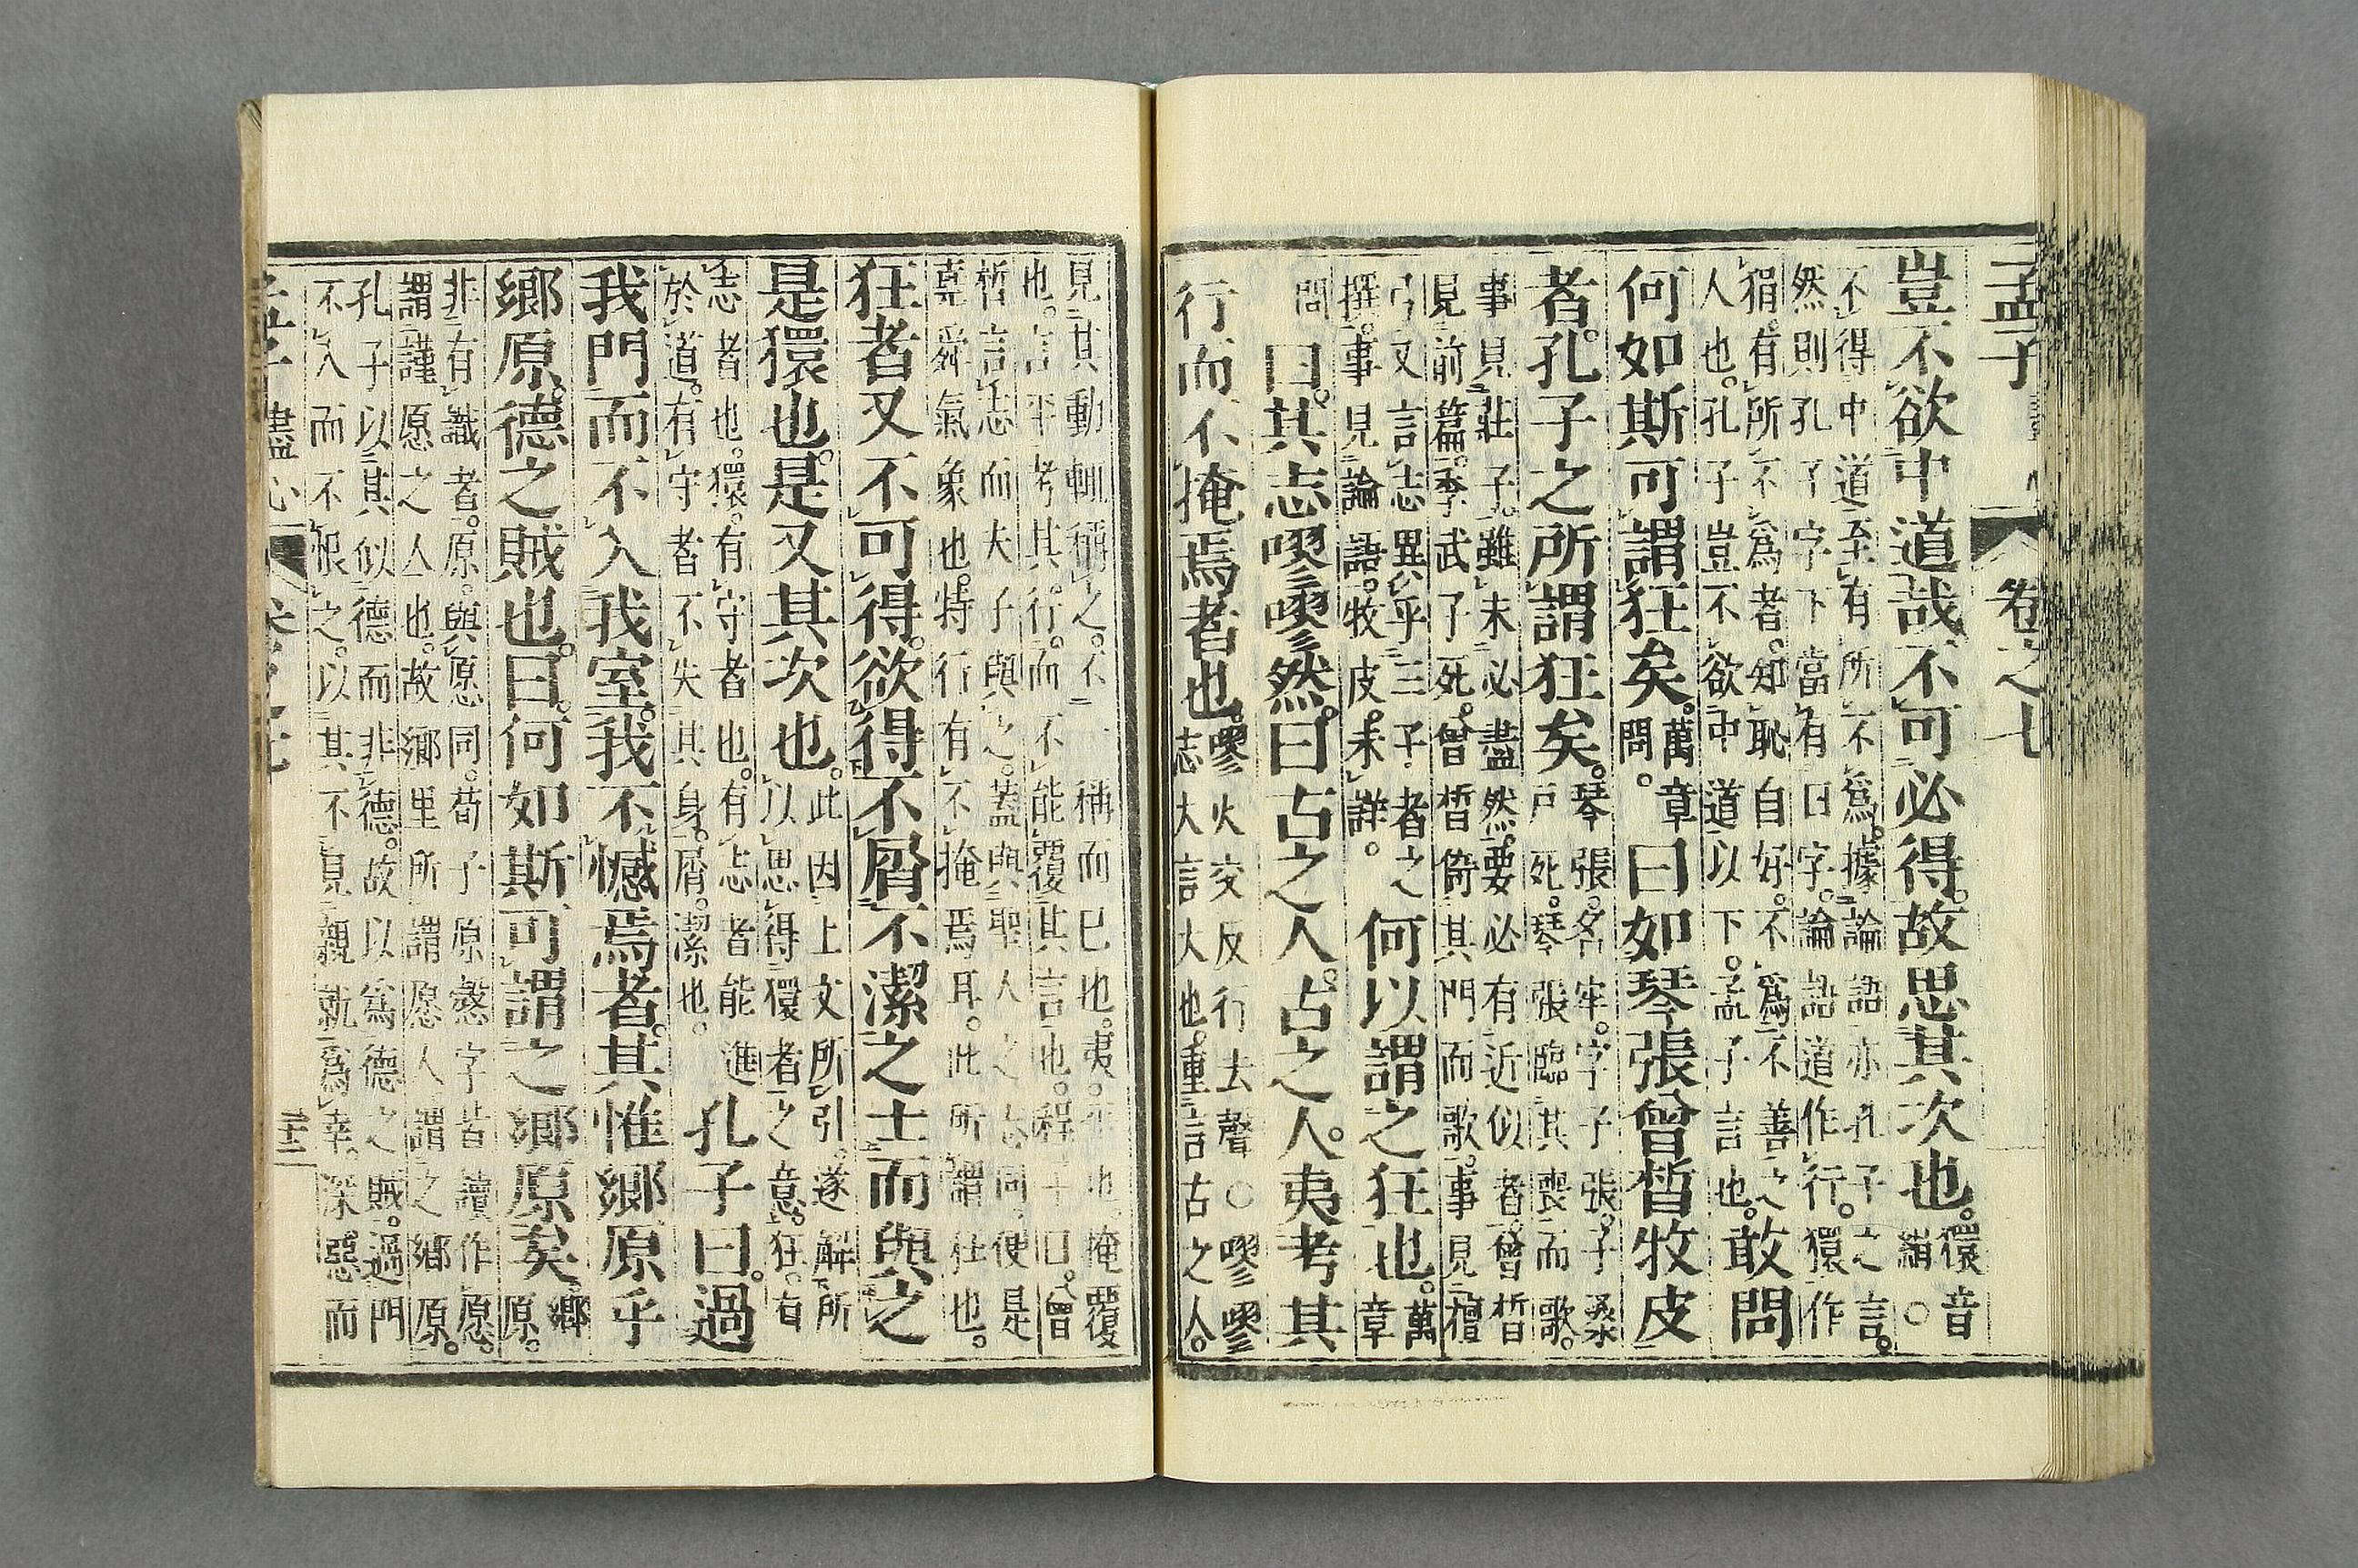 孟子 卷之七
豈不欲中道哉不可必得。故思其次也。獧音
絹○
不得中道至有所不爲。據論語亦孔子之言。
然則孔子字下當有曰字。論語道作行。獧作
狷。有所不爲者。知恥自好。不爲不善之
人也。孔子豈不欲中道以下。孟子言也。敢問
何如斯可謂狂矣。萬章
問。曰如琴張曾晳牧皮
者。孔子之所謂狂矣。琴張。名牢。字子張。子桑
戶死。琴張臨其喪而歌。
事見莊子。雖未必盡然。要必有近似者。曾晳
見前篇。季武子死。曾晳倚其門而歌。事見檀
弓又言志異乎三子者之
撰。事見論語。牧皮。未詳。何以謂之狂也。萬
章
問曰。其志嘐嘐然。曰古之人。古之人。夷考其
行而不掩焉者也。嘐火交反行去聲○嘐嘐
志大言大也。重言古之人。
見其動輒稱之。不一稱而已也。夷。平也。掩覆
也。言平考其行。而不能覆其言也。程子曰。曾
晳言志而夫子與之。蓋與聖人之志同。便是
堯舜氣象也。特行有不掩焉耳。此所謂狂也。
狂者又不可得。欲得不屑不潔之士而與之
是獧也。是又其次也。此因上文所引。遂解所
以思得獧者之意。狂。有
志者也。獧。有守者也。有志者能進
於道。有守者不失其身。屑。潔也。孔子曰。過
我門而不入我室。我不憾焉者。其惟鄉原乎
鄉原。德之賊也。曰。何如斯可謂之鄉原矣鄉
原。
非有識者。原。與愿同。荀子原慤字皆讀作愿。
謂謹愿之人也。故鄉里所謂愿人謂之鄉原。
孔子以其似德而非德。故以爲德之賊。過門
不入而不恨之。以其不見親就爲幸。深惡而
孟子 盡心 卷之七 三十二